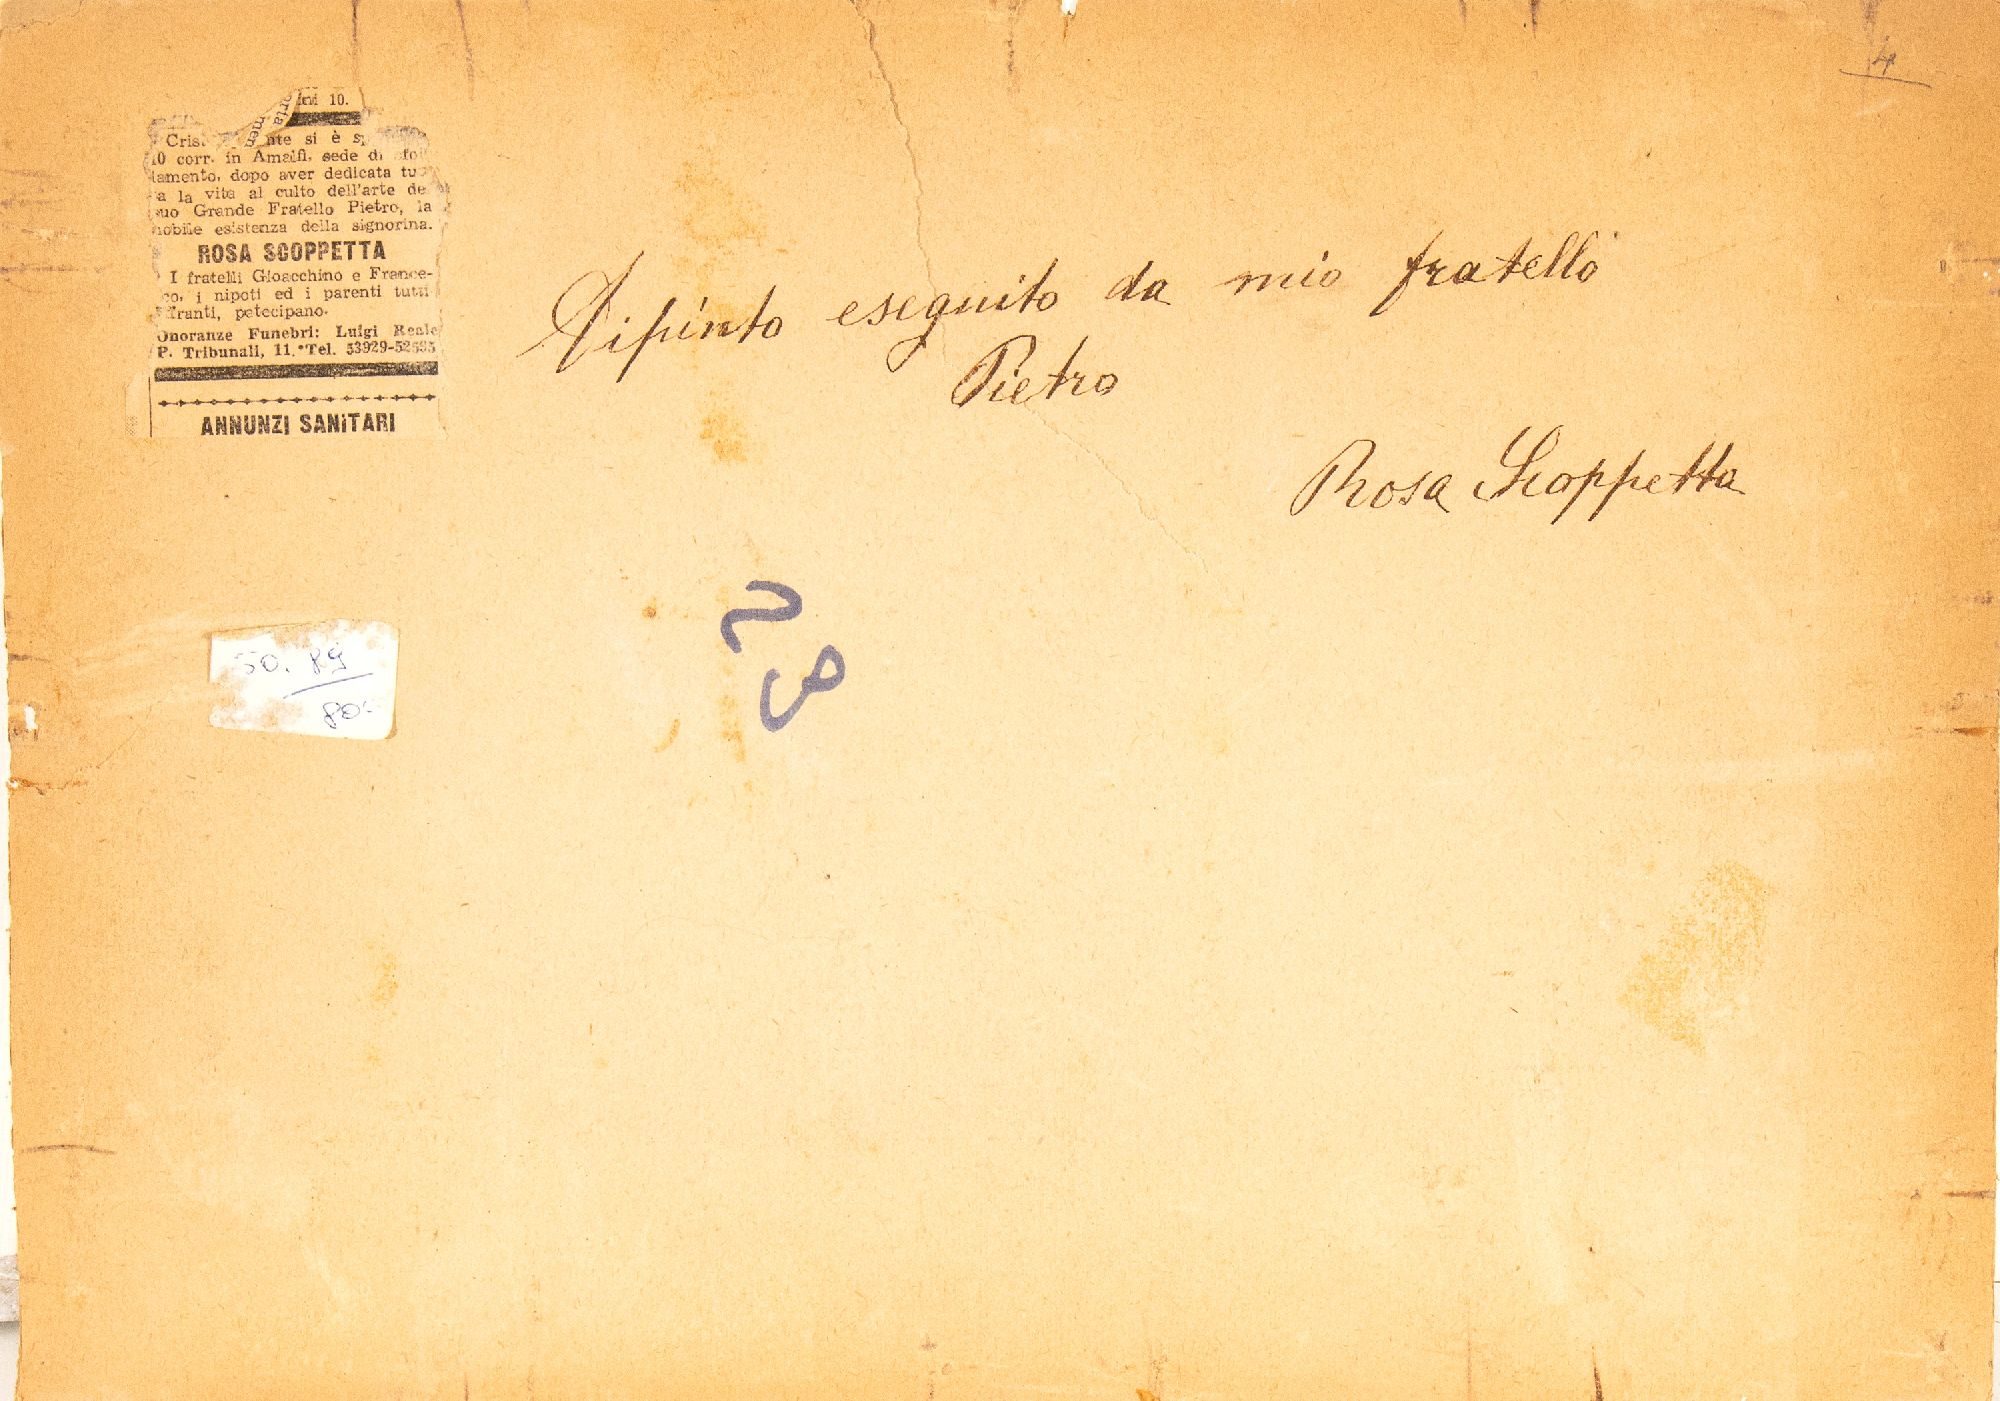 ini 10.
Cris nte si è
10 corr. in Amalfi, sede di sfol
lamento, dopo aver dedicata tut
ta la vita al culto dell'arte de
suo Grande Fratello Pietro, la
nobile esistenza della signorina.
ROSA SCOPPETTA
I fratelli Gioacchino e France-
co, i nipoti ed i parenti tutti
ffranti, petecipano.
Onoranze Funebri: Luigi Reale
P. Tribunali, 11. Tel. 53929-52535
ANNUNZI SANITARI
4
Dipinto eseguito da mio fratello
Pietro
Rosa Scoppetta
50. 89